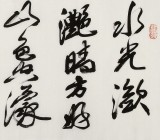 水光潋
灩晴方好
山色濛